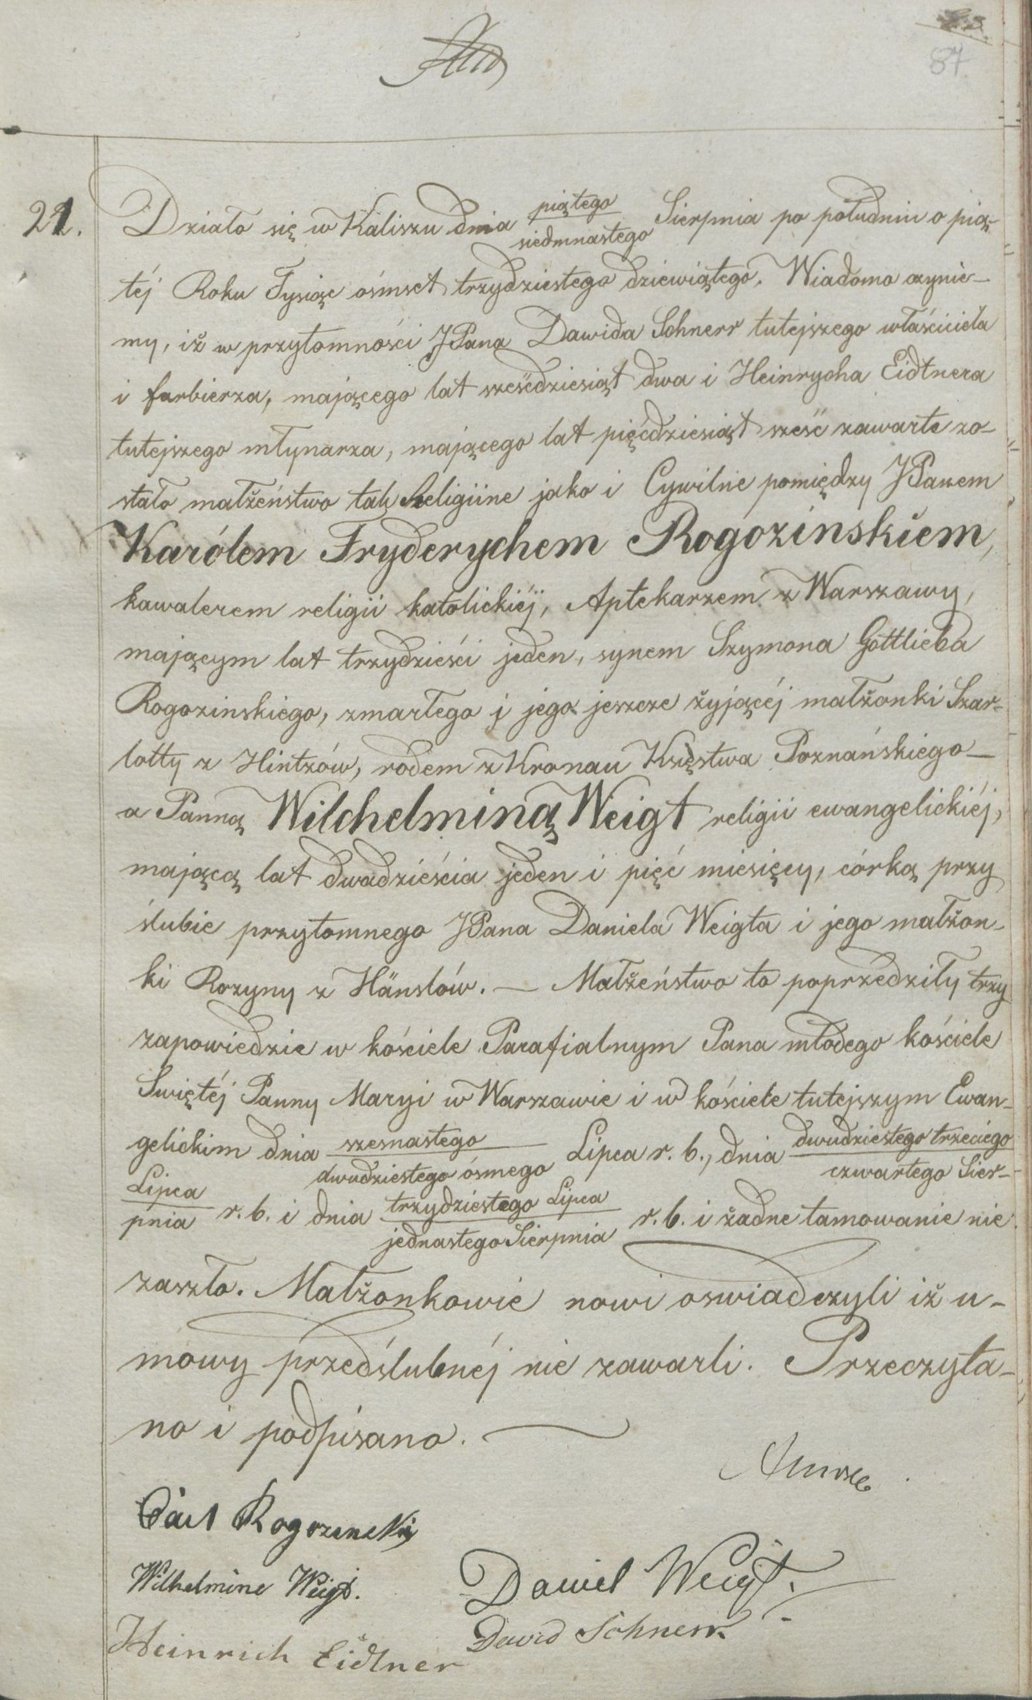 87
21.
Działo się w Kaliszu dnia piątego / siedmnastego Sierpnia po południu o pią-
téj Roku Tysiąc ośmset trzydziestego dziewiątego. Wiadomo czynie-
my, iż w przytomności JPana Dawida Schnerr tutejszego właściciela
i farbierza, mającego lat sześćdziesiąt dwa i Heinrycha Eidtnera
tutejszego młynarza, mającego lat pięćdziesiąt sześć zawarte zo-
stało małżeństwo tak Religiine jako i Cywilne pomiędzy JPanem
Karólem Fryderychem Rogozinskiem,
kawalerem religii katolickiéj, Aptekarzem z Warszawy,
mającym lat trzydzieści jeden, synem Szymona Gottlieba
Rogozinskiego, zmarłego i jego jeszcze żyjącéj małżonki Szar-
lotty z Hintzów, rodem z Kronau Księstwa Poznańskiego —
a Panną Wilchelminą Weigt religii ewangelickiéj,
mającą lat dwadzieścia jeden i pięć miesięcy, córką przy
ślubie przytomnego JPana Daniela Weigta i jego małżon-
ki Rozyny z Hänslów. — Małżeństwo to poprzedziły trzy
zapowiedzie w kościele Parafialnym Pana młodego kościele
Świętéj Panny Maryi w Warszawie i w kościele tutejszym Ewan-
gelickim dnia szesnastego / dwudziestego ósmego Lipca r. b., dnia dwudziestego trzeciego / czwartego Sier-
Lipca / pnia r. b. i dnia trzydziestego Lipca / jednastego Sierpnia r. b. i żadne tamowanie nie
zaszło. Małżonkowie nowi oswiadczyli iż u-
mowy przedślubnéj nie zawarli. Przeczyta-
no i podpisano. —
Carl Rogozinski
Wilhelmine Weigt.
Daniel Weigt.
David Schnerr.
Heinrich Eidtner